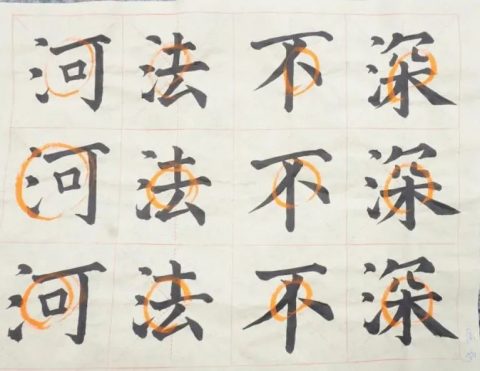 河法不深
河法不深
河法不深